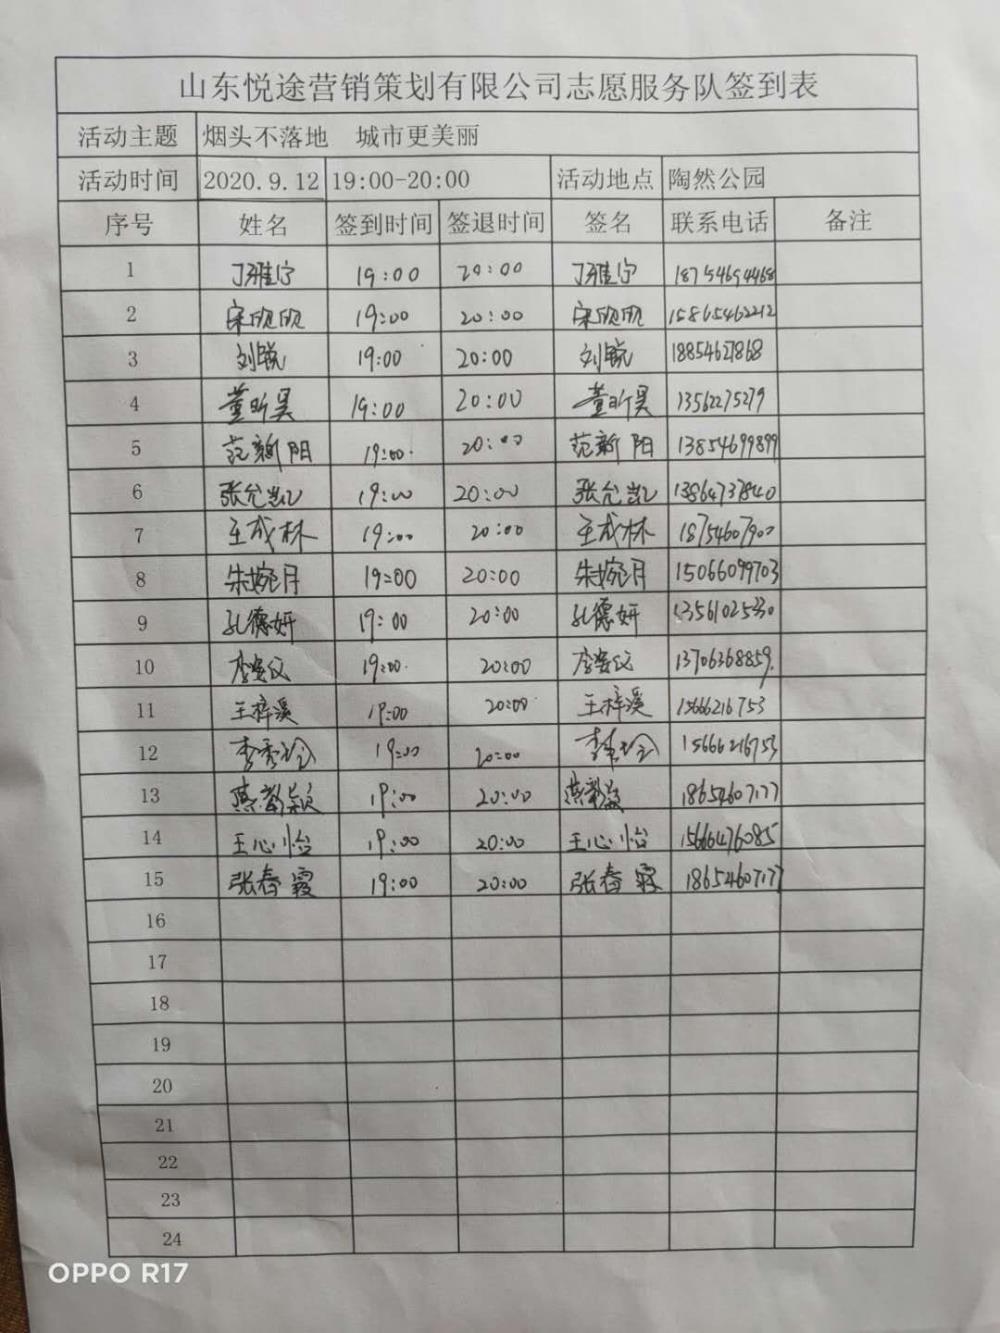 山东悦途营销策划有限公司志愿服务队签到表
活动主题 烟头不落地 城市更美丽
活动时间 2020.9.12 19:00-20:00 活动地点 陶然公园
序号 姓名 签到时间 签退时间 签名 联系电话 备注
1 丁雅宁 19:00 20:00 丁雅宁 18754694468
2 宋欣欣 19:00 20:00 宋欣欣 15865462212
3 刘锐 19:00 20:00 刘锐 18854627868
4 董昕昊 19:00 20:00 董昕昊 13562275279
5 范新阳 19:00 20:00 范新阳 13854699899
6 张允凯 19:00 20:00 张允凯 13864737840
7 王成林 19:00 20:00 王成林 18754607900
8 朱婉月 19:00 20:00 朱婉月 15066099703
9 孔德妍 19:00 20:00 孔德妍 13561025330
10 李姿仪 19:00 20:00 李姿仪 13706368859
11 王梓溪 19:00 20:00 王梓溪 15666216753
12 李秀玲 19:00 20:00 李秀玲 15666216753
13 19:00 20:00 18654607177
14 王心怡 19:00 20:00 王心怡 15666476085
15 张春霞 19:00 20:00 张春霞 18654607177
16
17
18
19
20
21
22
23
24
OPPO R17